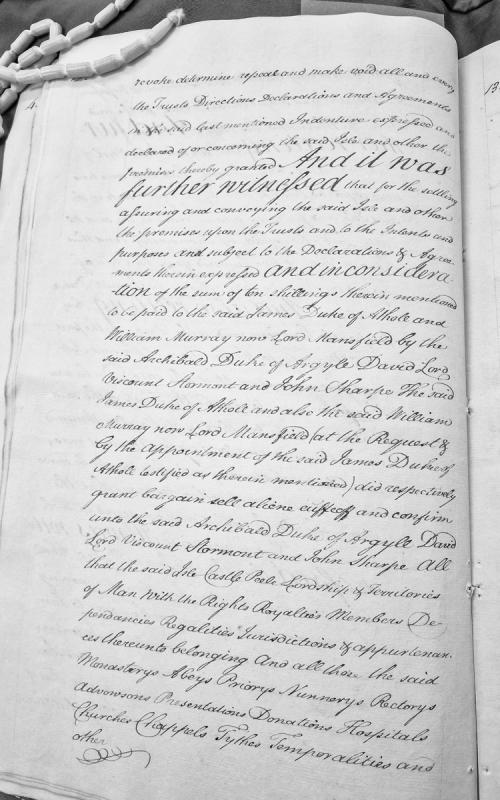 4.
revoke determine repeal and make void all and every
the Trusts Directions Declarations and Agreements
in the said last mentioned Indenture expressed and
declared of or concerning the said Isle and other the
premises thereby granted And it was
further witnessed that for the settling
assuring and conveying the said Isle and other
the premises upon the Trusts and to the Intents and
purposes and subject to the Declarations & Agree-
ments therein expressed and in considera-
-tion of the sum of ten shillings therein mentioned
to be paid to the said James Duke of Atholl and
William Murray now Lord Mansfield by the
said Archibald Duke of Argyll David Lord
Viscount Stormont and John Sharpe The said
James Duke of Atholl and also the said William
Murray now Lord Mansfield (at the Request &
by the Appointment of the said James Duke of
Atholl testified as therein mentioned) did respectively
grant bargain sell aliene enffeoff and confirm
unto the said Archibald Duke of Argyll David
Lord Viscount Stormont and John Sharpe All
that the said Isle Castle Peele Lordship & Territories
of Man with the Rights Royalties Members De-
pendancies Regalities Jurisdictions & appurtenan-
ces thereunto belonging And all those the said
Monasterys Abeys Priorys Nunnerys Rectorys
Advowsons Presentations Donations Hospitals
Churches Chappels Tythes Temporalities and
other
13